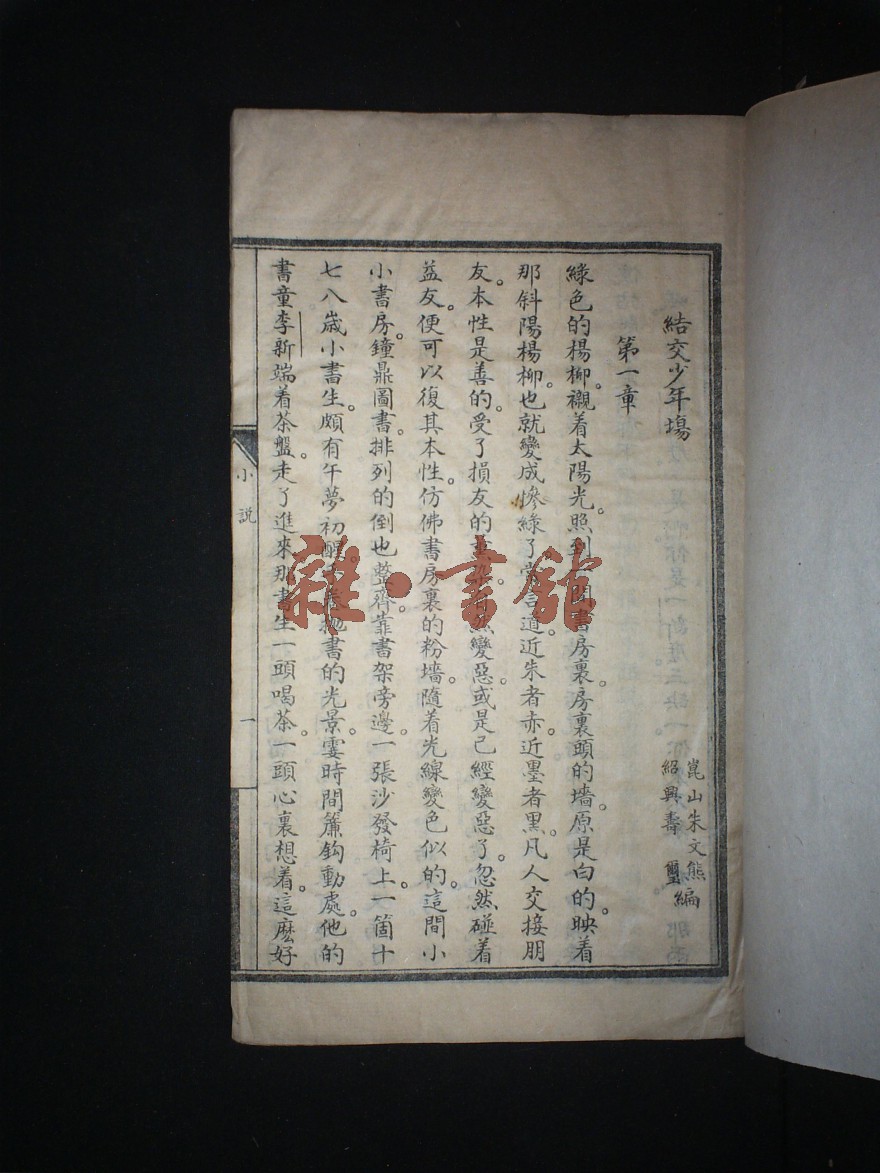 結交少年場
崑山朱文熊編
紹興壽璽編
第一章
綠色的楊柳。襯着太陽光。照到一間書房裏。房裏頭的墻。原是白的。映着
那斜陽楊柳。也就變成慘綠了。常言道。近朱者赤。近墨者黑。凡人交接朋
友。本性是善的。受了損友的熏染。自然變惡。或是已經變惡了。忽然碰着
益友。便可以復其本性。仿佛書房裏的粉墻。隨着光線變色似的。這間小
小書房。鐘鼎圖書。排列的倒也整齊。靠書架旁邊。一張沙發椅上。一箇十
七八歲小書生。頗有午夢初醒。拋書的光景。霎時間簾鈎動處。他的
書童李新。端着茶盤。走了進來。那書生一頭喝茶。一頭心裏想着。這麽好
小説
一
雜·書館